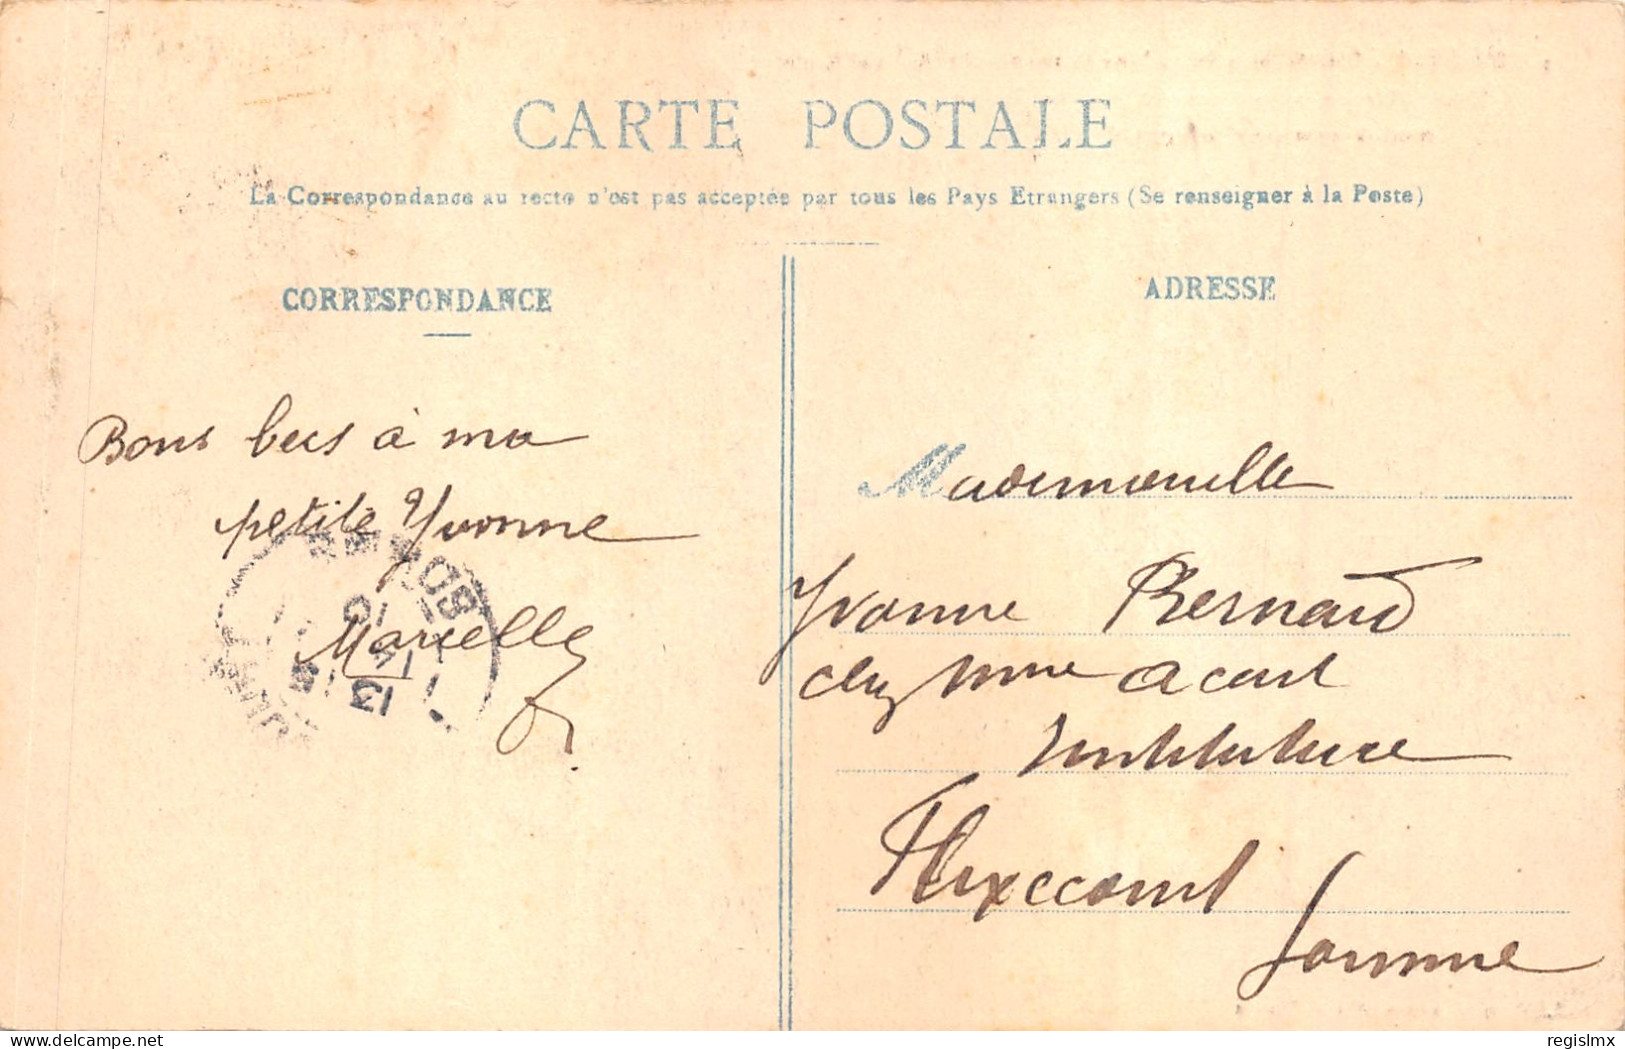 CARTE POSTALE
La Correspondance au recto n'est pas acceptée par tous les Pays Etrangers (Se renseigner à la Poste)
CORRESPONDANCE
Bons becs à ma
petite Yvonne
Marcelle
ADRESSE
Mademoiselle
Yvonne Bernard
chez Mme Acart
Institutrice
Flixecourt
Somme
13
regislmx